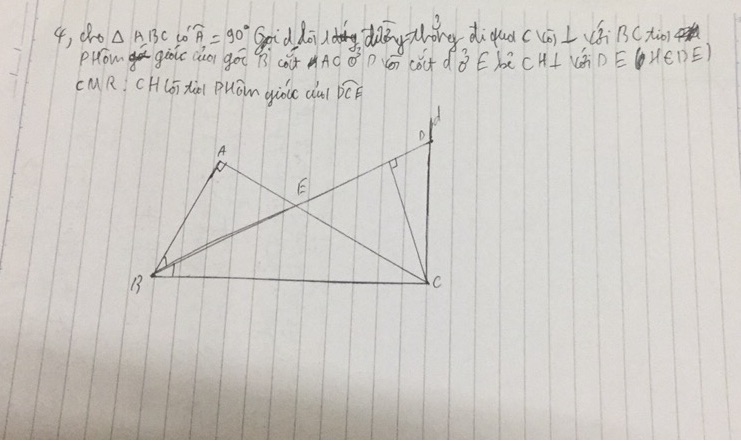 4, cho Δ ABC có Â = 90° Gọi d là đường thẳng đi qua C và ⊥ với BC tia
phân giác của góc B cắt AC ở D và cắt d ở E kẻ CH ⊥ với DE (H∈DE)
CMR: CH là tia phân giác của DCE
d
D
A
E
B
C